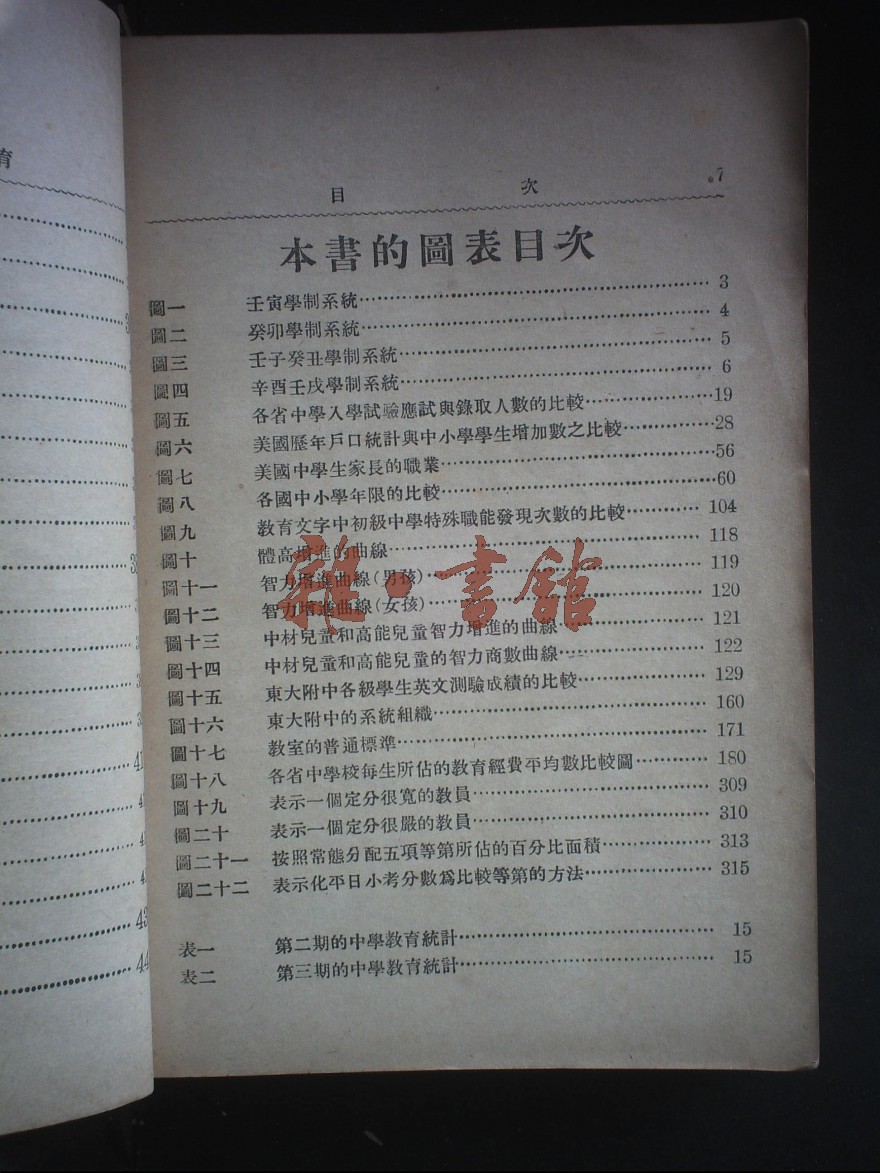 育
目 次 7
本書的圖表目次
圖一 壬寅學制系統 3
圖二 癸卯學制系統 4
圖三 壬子癸丑學制系統 5
圖四 辛酉壬戌學制系統 6
圖五 各省中學入學試驗應試與錄取人數的比較 19
圖六 美國歷年戶口統計與中小學學生增加數之比較 28
圖七 美國中學生家長的職業 56
圖八 各國中小學年限的比較 60
圖九 教育文字中初級中學特殊職能發現次數的比較 104
圖十 體高增進的曲線 118
圖十一 智力增進曲線(男孩) 119
圖十二 智力增進曲線(女孩) 120
圖十三 中材兒童和高能兒童智力增進的曲線 121
圖十四 中材兒童和高能兒童的智力商數曲線 122
圖十五 東大附中各級學生英文測驗成績的比較 129
圖十六 東大附中的系統組織 160
圖十七 教室的普通標準 171
圖十八 各省中學校每生所佔的教育經費平均數比較圖 180
圖十九 表示一個定分很寬的教員 309
圖二十 表示一個定分很嚴的教員 310
圖二十一 按照常態分配五項等第所佔的百分比面積 313
圖二十二 表示化平日小考分數爲比較等第的方法 315
表一 第二期的中學教育統計 15
表二 第三期的中學教育統計 15
雜·書館
43
44